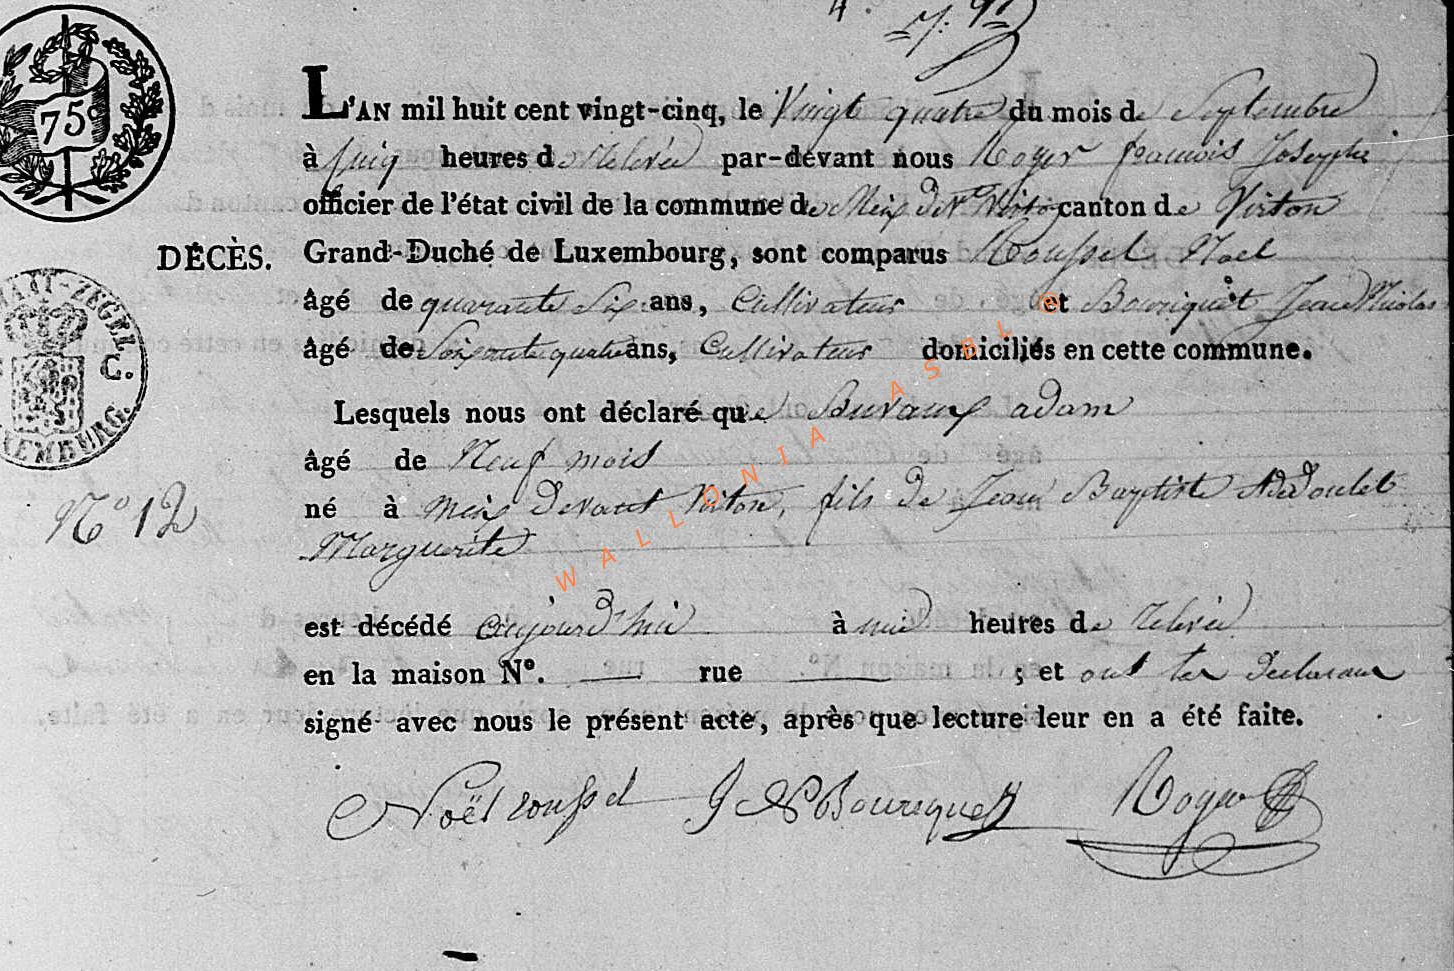 75c
L'AN mil huit cent vingt-cinq, le Vingt quatre du mois de Septembre
à Cinq heures de Relevée par-devant nous Roger francois Josephe
officier de l'état civil de la commune de Meix devt Virton canton de Virton
DÉCÈS.
Grand-Duché de Luxembourg, sont comparus Roussel Noel
âgé de quarante Six ans, Cultivateur et Bouriquet Jean Nicolas
âgé de Soixante quatre ans, Cultivateur domiciliés en cette commune.
C.
Lesquels nous ont déclaré que Buvaux adam
âgé de Neuf mois
né à Meix Devant Virton, fils de Jean Baptiste
N° 12
Marguerite
est décédé aujourd'hui à heures de relevée
en la maison N°. rue ; et ont les Declarans
signé avec nous le présent acte, après que lecture leur en a été faite.
Noël roussel J N Bouriquet Roger
WALLONIA ASBL ©